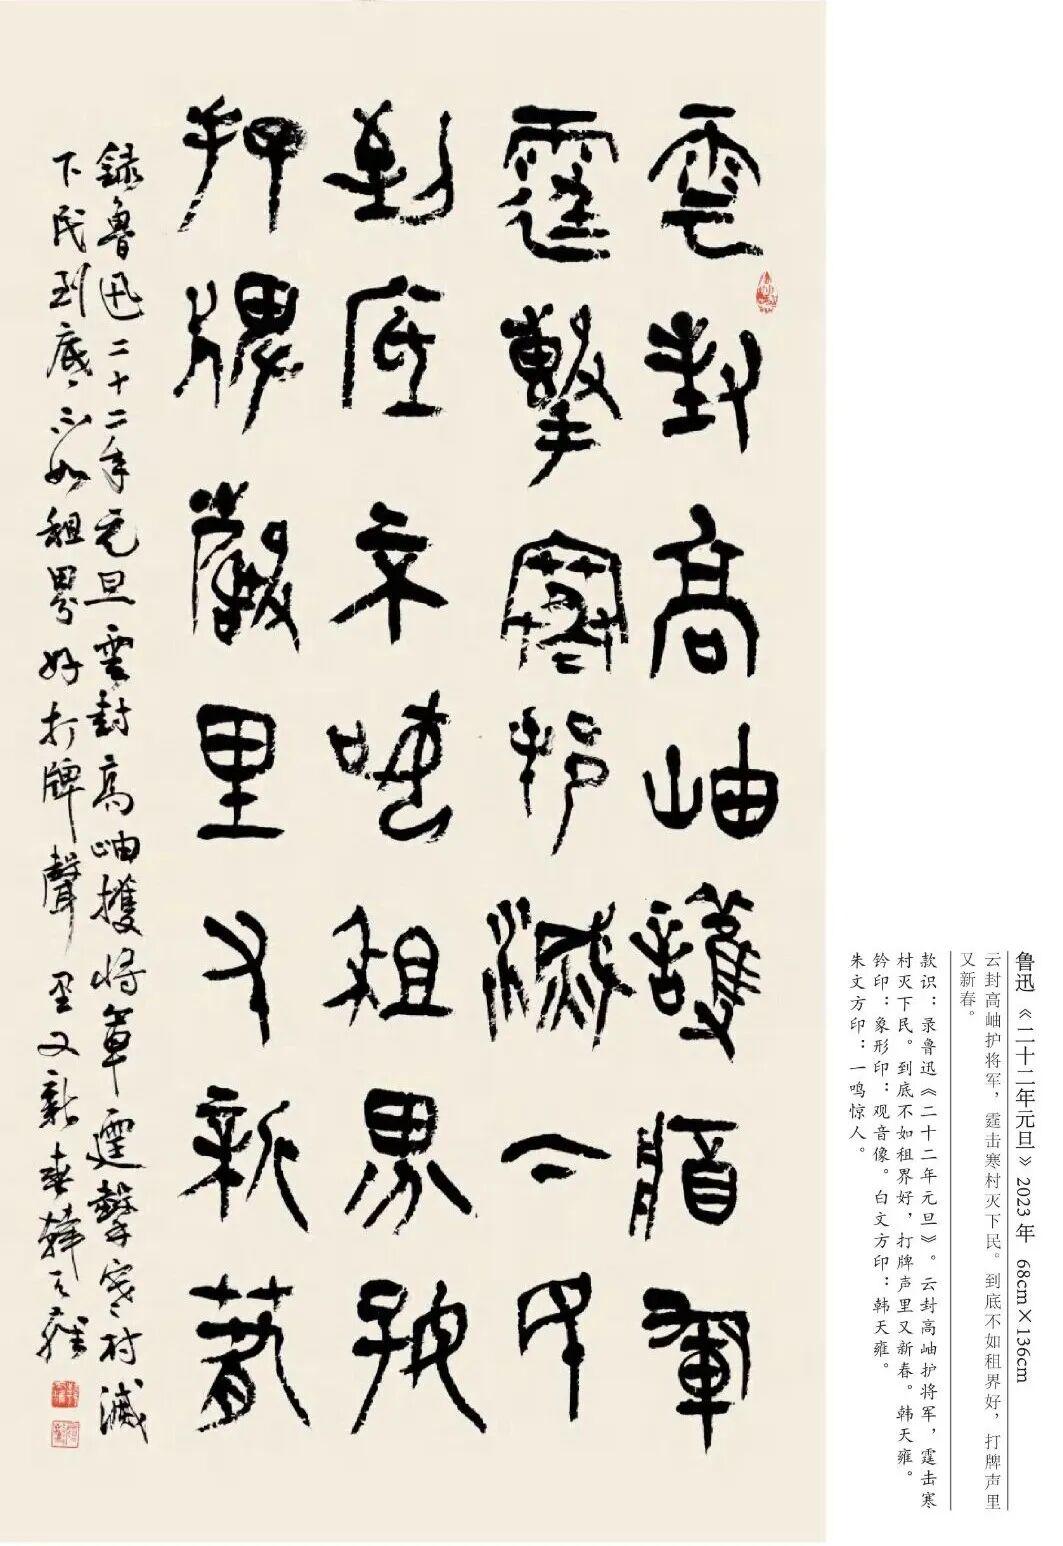 鲁迅《二十二年元旦》2023年 68cm×136cm
云封高岫护将军，霆击寒村灭下民。到底不如租界好，打牌声里
又新春。
款识：录鲁迅《二十二年元旦》。云封高岫护将军，霆击寒
村灭下民。到底不如租界好，打牌声里又新春。韩天雍。
钤印：象形印：观音像。白文方印：韩天雍。
朱文方印：一鸣惊人。
雲封高岫護將軍
霆擊寒邨滅下民
到底不如租界好
打牌聲里又新春
錄魯迅二十二年元旦雲封高岫擭將軍霆擊寒村滅
下民到底不如租界好打牌聲里又新春韓天雍